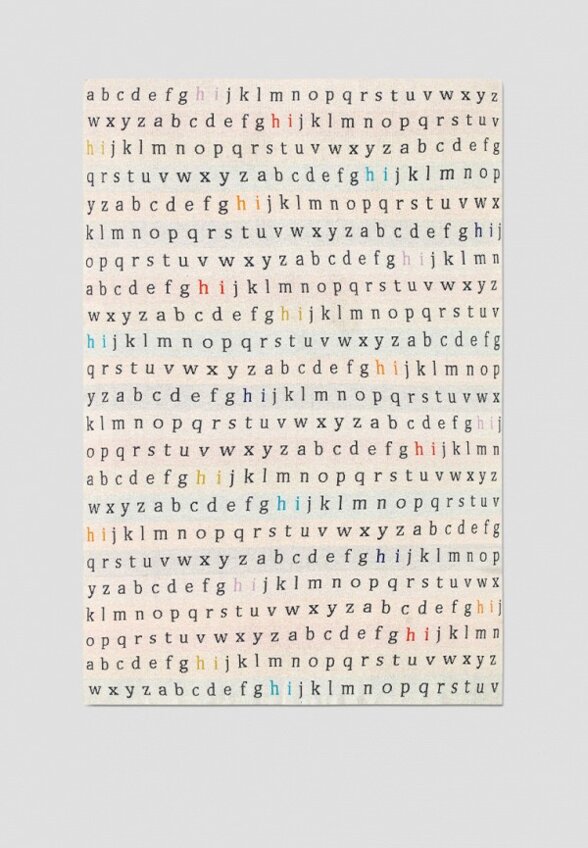 a b c d e f g h i j k l m n o p q r s t u v w x y z
w x y z a b c d e f g h i j k l m n o p q r s t u v
h i j k l m n o p q r s t u v w x y z a b c d e f g
q r s t u v w x y z a b c d e f g h i j k l m n o p
y z a b c d e f g h i j k l m n o p q r s t u v w x
k l m n o p q r s t u v w x y z a b c d e f g h i j
o p q r s t u v w x y z a b c d e f g h i j k l m n
a b c d e f g h i j k l m n o p q r s t u v w x y z
w x y z a b c d e f g h i j k l m n o p q r s t u v
h i j k l m n o p q r s t u v w x y z a b c d e f g
q r s t u v w x y z a b c d e f g h i j k l m n o p
y z a b c d e f g h i j k l m n o p q r s t u v w x
k l m n o p q r s t u v w x y z a b c d e f g h i j
o p q r s t u v w x y z a b c d e f g h i j k l m n
a b c d e f g h i j k l m n o p q r s t u v w x y z
w x y z a b c d e f g h i j k l m n o p q r s t u v
h i j k l m n o p q r s t u v w x y z a b c d e f g
q r s t u v w x y z a b c d e f g h i j k l m n o p
y z a b c d e f g h i j k l m n o p q r s t u v w x
k l m n o p q r s t u v w x y z a b c d e f g h i j
o p q r s t u v w x y z a b c d e f g h i j k l m n
a b c d e f g h i j k l m n o p q r s t u v w x y z
w x y z a b c d e f g h i j k l m n o p q r s t u v